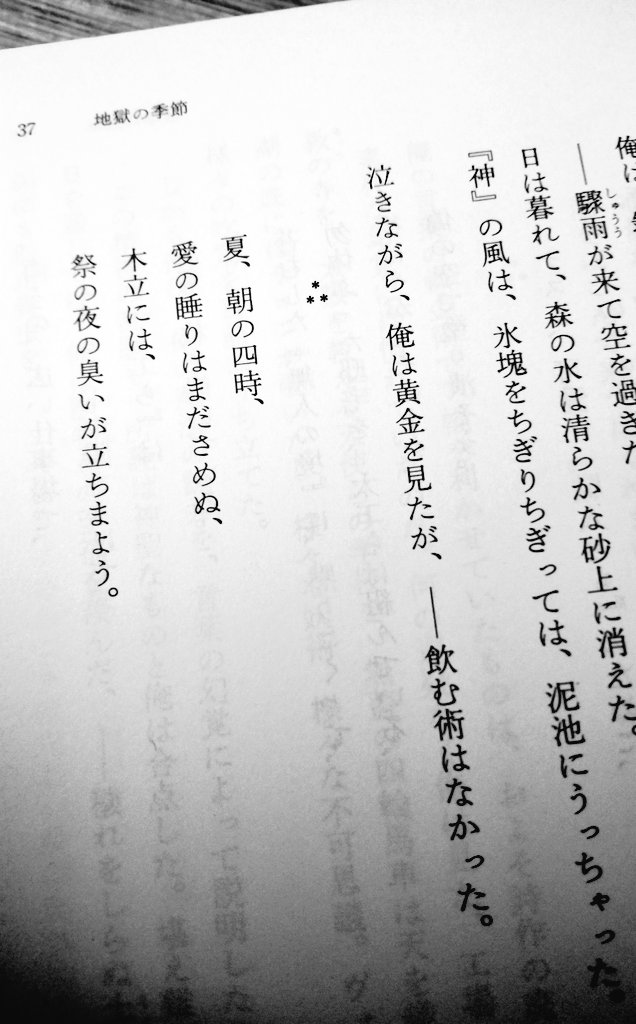 37 地獄の季節
俺は
――驟雨が来て空を過ぎた
日は暮れて、森の水は清らかな砂上に消えた。
『神』の風は、氷塊をちぎりちぎっては、泥池にうっちゃった。
泣きながら、俺は黄金を見たが、――飲む術はなかった。
***
夏、朝の四時、
愛の睡りはまださめぬ、
木立には、
祭の夜の臭いが立ちまよう。